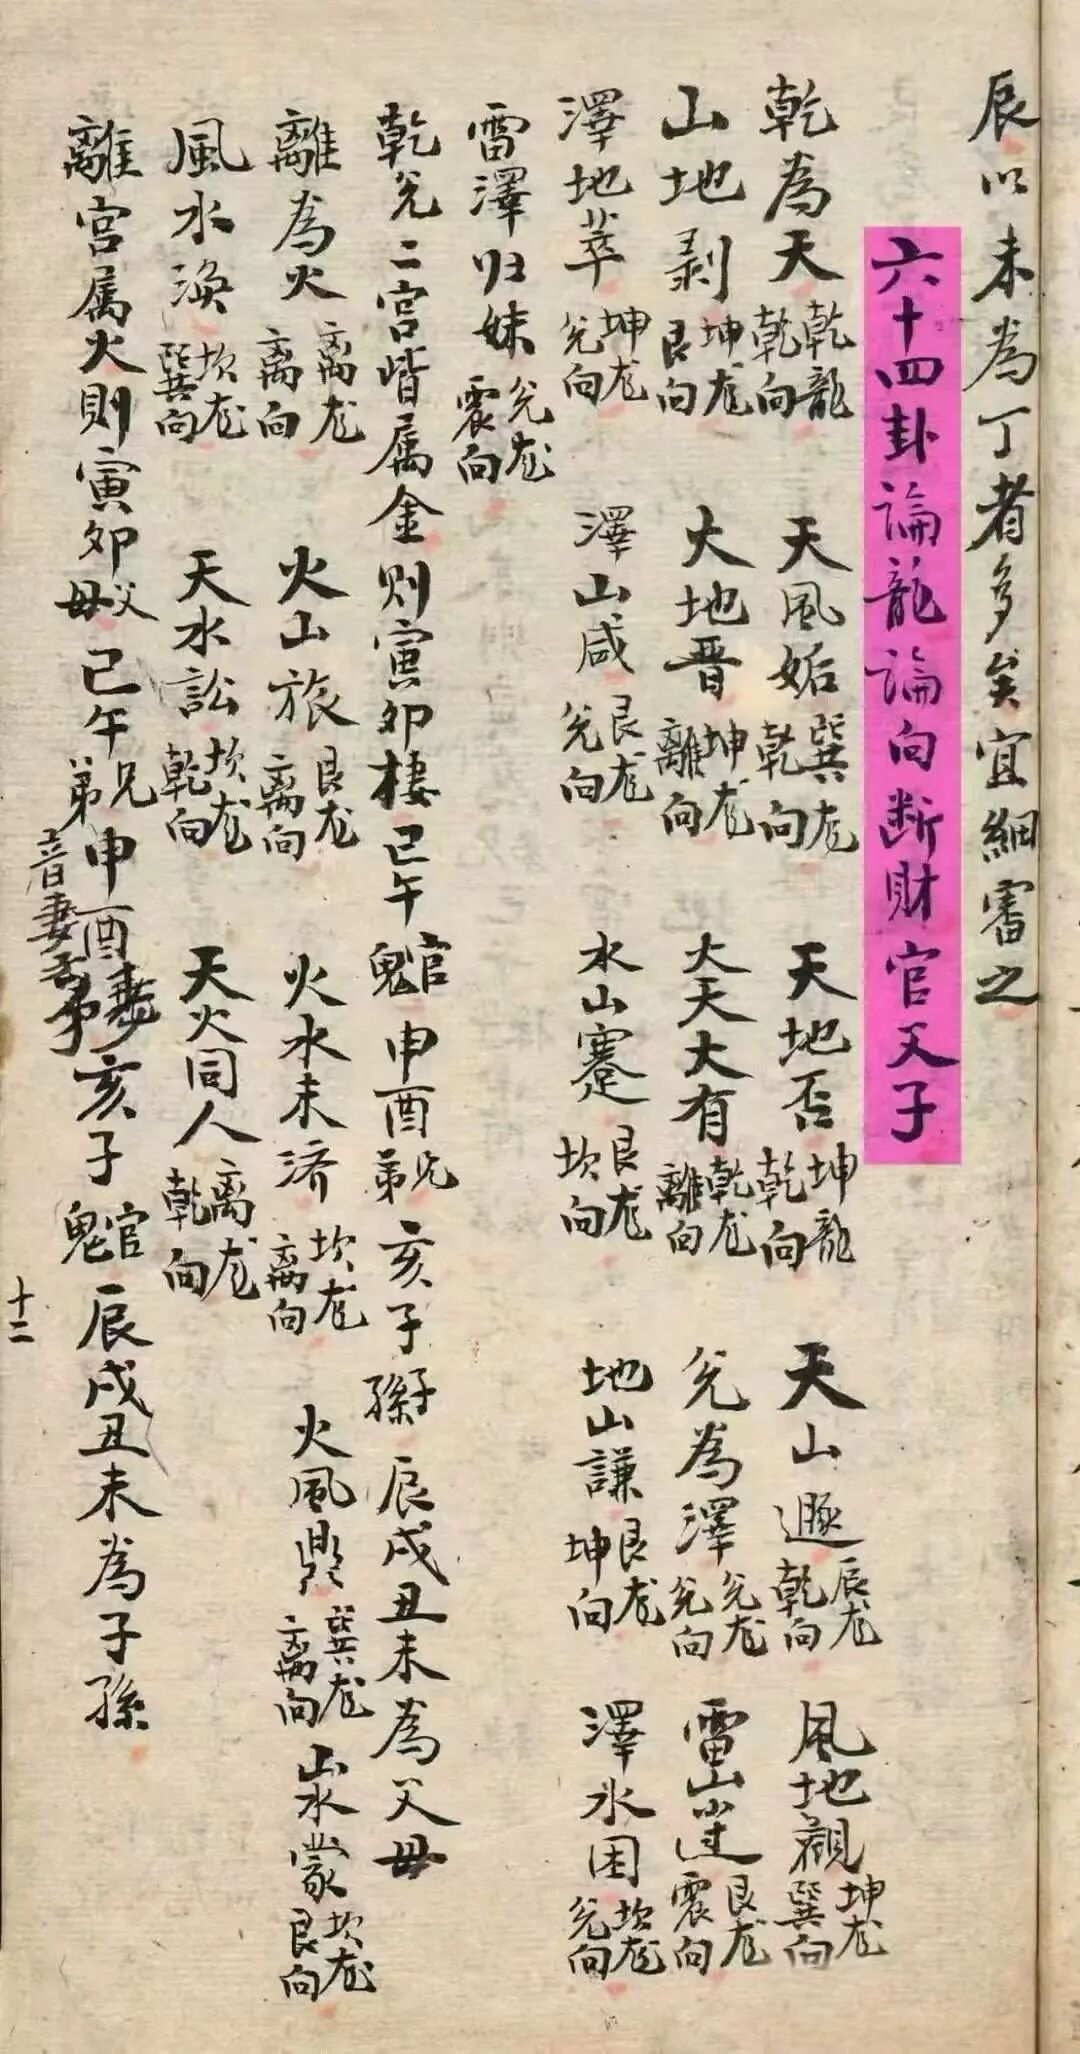 辰以未為丁者多矣宜細審之
六十四卦論龍論向断財官父子
乾為天乾龍乾向 天風姤巽龙乾向 天地否坤龍乾向 天山遯辰龙乾向 風地觀坤龙巽向
山地剥坤龙艮向 大地晋坤龙離向 大天大有乾龙離向 兌為澤兌龙兌向 雷山艮龙震向
澤地萃坤龙兌向 澤山咸艮龙兌向 水山蹇艮龙坎向 地山謙艮龙坤向 澤水困坎龙兌向
雷澤归妹兌龙震向
乾兌二宫皆属金则寅卯棲己午官鬼申酉兄弟亥子子孫辰戌丑未為父母
離為火离龙离向 火山旅艮龙离向 火水未济坎龙离向 火風鼎巽龙离向 山水蒙坎龙艮向
風水渙坎龙巽向 天水訟坎龙乾向 天火同人离龙乾向
離宫属火則寅卯父母己午兄弟申酉妻亥子官鬼辰戌丑未為子孫
十二